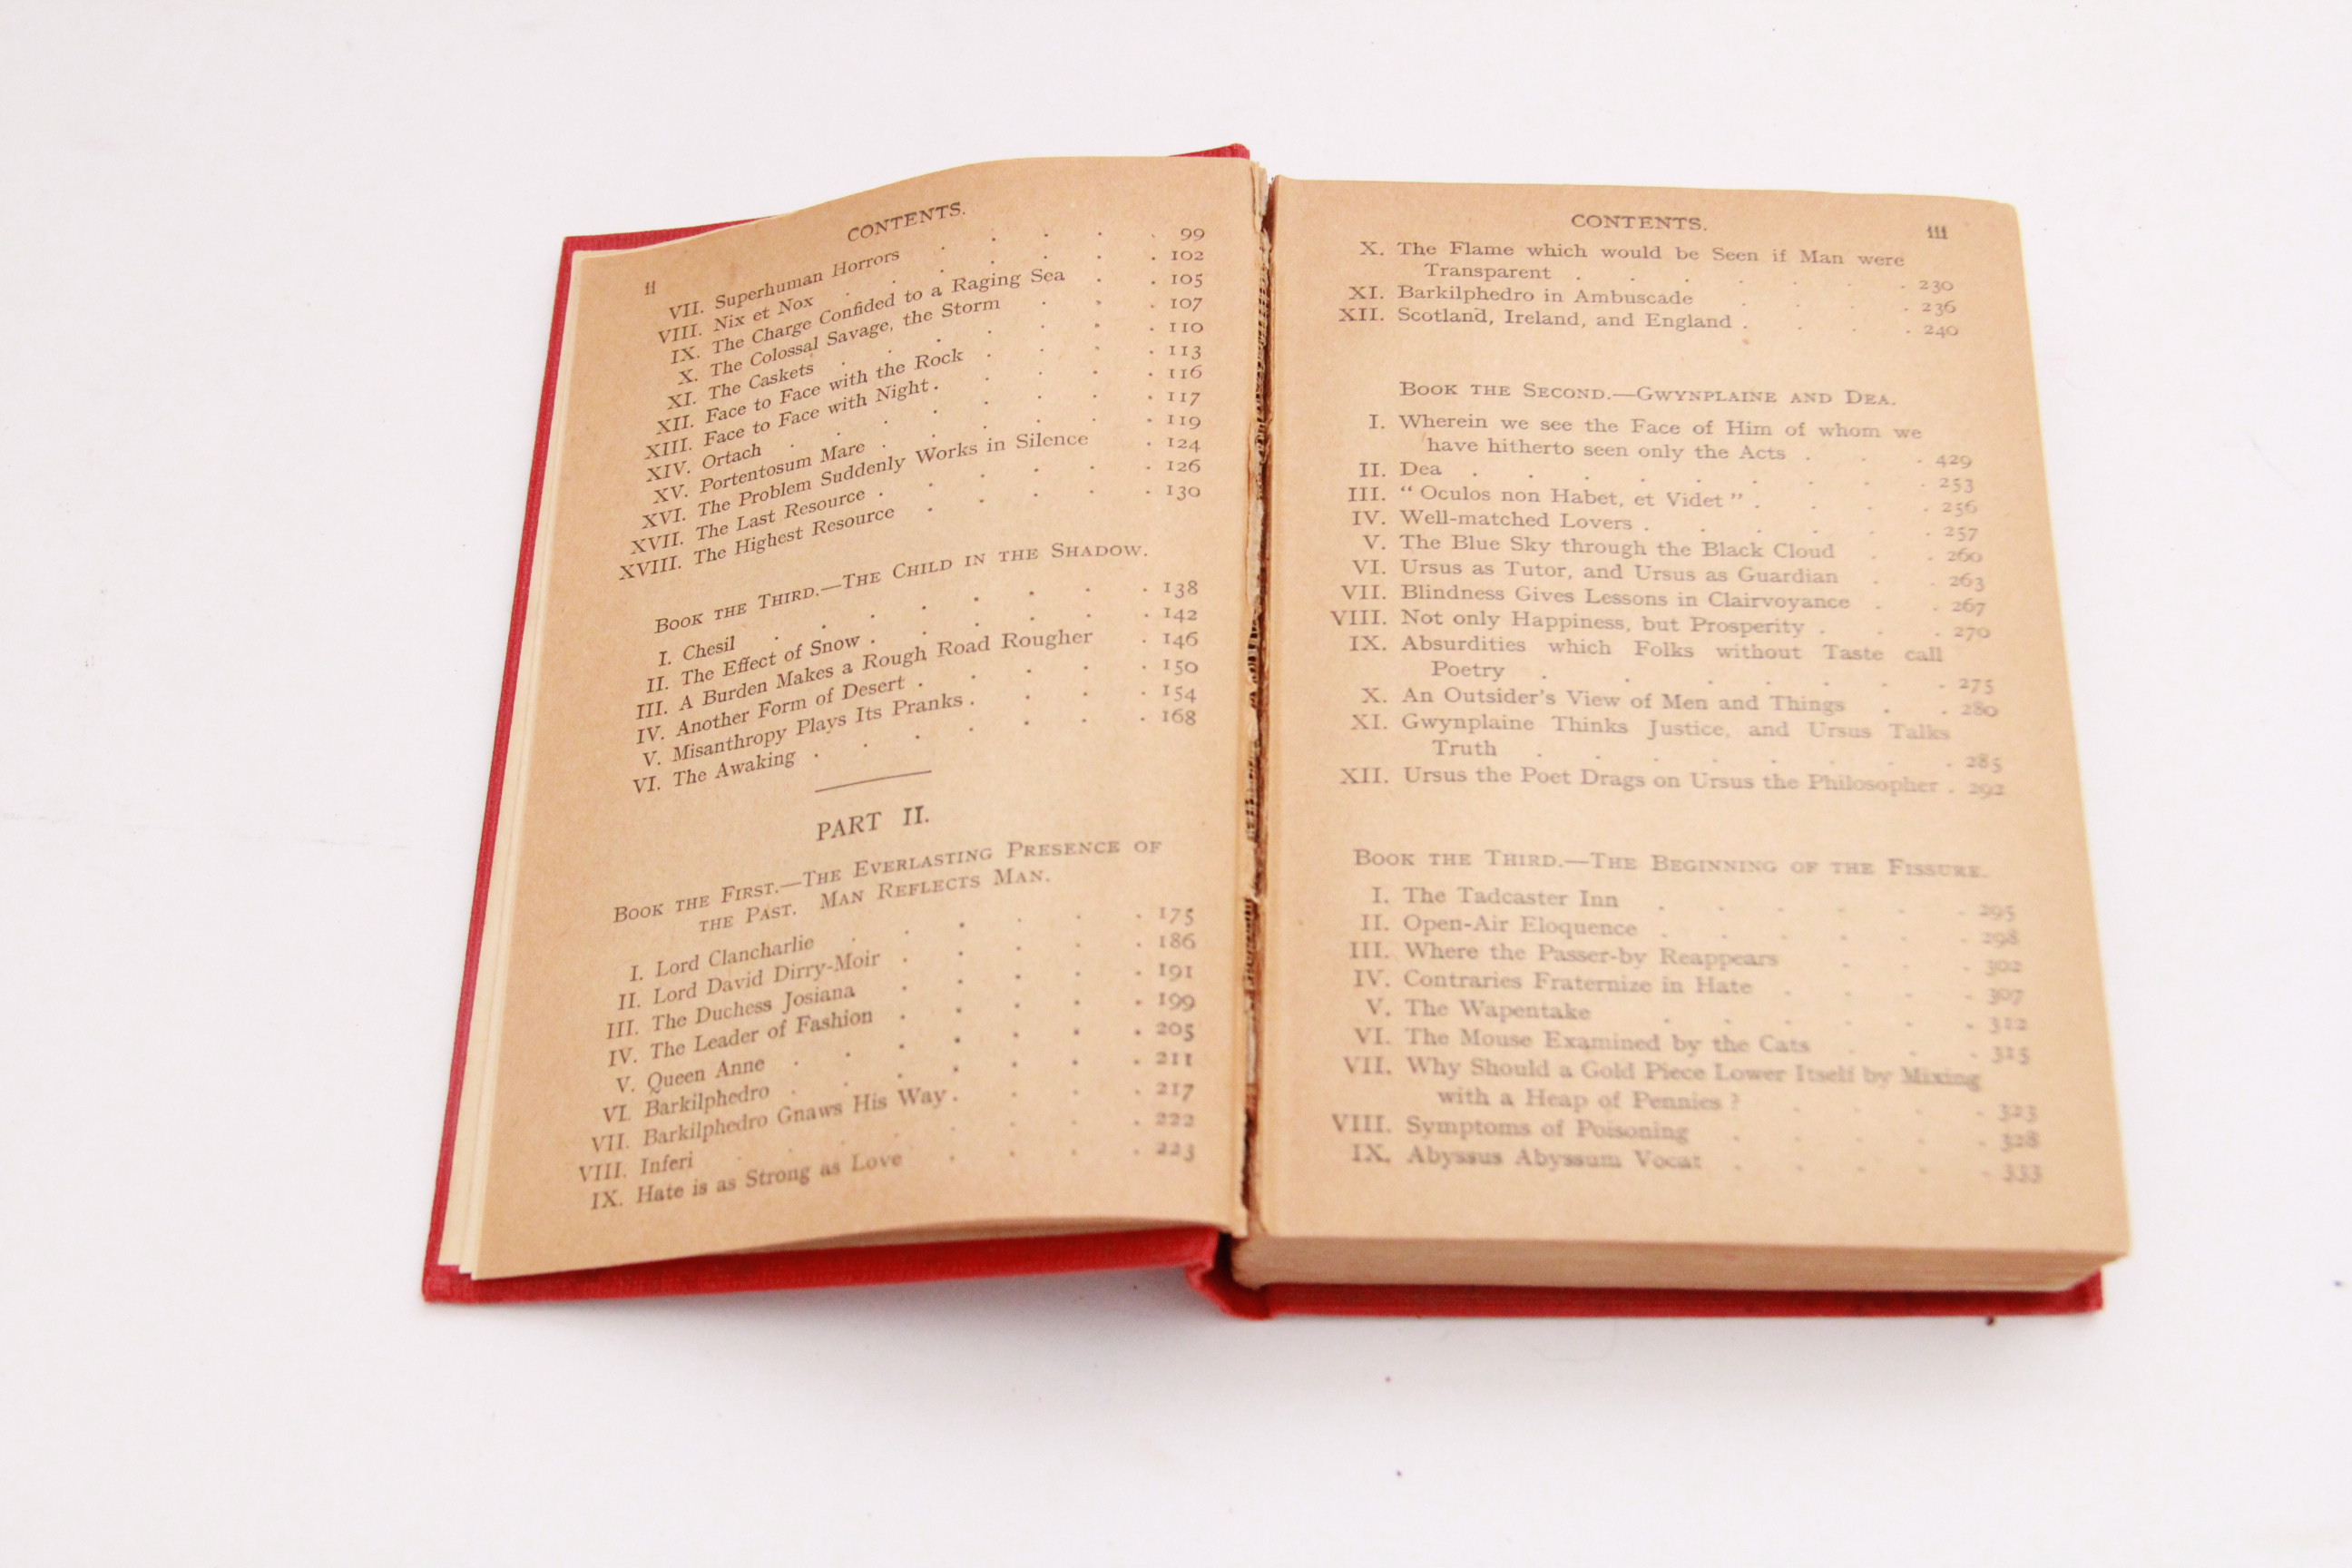 ii
CONTENTS.
VII. Superhuman Horrors . . . . . 99
VIII. Nix et Nox . . . . . . 102
IX. The Charge Confided to a Raging Sea . . 105
X. The Colossal Savage, the Storm . . . 107
XI. The Caskets . . . . . . 110
XII. Face to Face with the Rock . . . . 113
XIII. Face to Face with Night . . . . . 116
XIV. Ortach . . . . . . . 117
XV. Portentosum Mare . . . . . . 119
XVI. The Problem Suddenly Works in Silence . 124
XVII. The Last Resource . . . . . . 126
XVIII. The Highest Resource . . . . . 130
BOOK THE THIRD.—THE CHILD IN THE SHADOW.
I. Chesil . . . . . . . . 138
II. The Effect of Snow . . . . . . 142
III. A Burden Makes a Rough Road Rougher . 146
IV. Another Form of Desert . . . . . 150
V. Misanthropy Plays Its Pranks . . . . 154
VI. The Awaking . . . . . . . 168
PART II.
BOOK THE FIRST.—THE EVERLASTING PRESENCE OF
THE PAST. MAN REFLECTS MAN.
I. Lord Clancharlie . . . . . . 175
II. Lord David Dirry-Moir . . . . . 186
III. The Duchess Josiana . . . . . 191
IV. The Leader of Fashion . . . . . 199
V. Queen Anne . . . . . . . 205
VI. Barkilphedro . . . . . . . 211
VII. Barkilphedro Gnaws His Way . . . . 217
VIII. Inferi . . . . . . . . 222
IX. Hate is as Strong as Love . . . . 223
CONTENTS.
iii
X. The Flame which would be Seen if Man were
Transparent . . . . . . . 230
XI. Barkilphedro in Ambuscade . . . . 236
XII. Scotland, Ireland, and England . . . . 240
BOOK THE SECOND.—GWYNPLAINE AND DEA.
I. Wherein we see the Face of Him of whom we
have hitherto seen only the Acts . . . 429
II. Dea . . . . . . . . . 253
III. “Oculos non Habet, et Videt” . . . . 256
IV. Well-matched Lovers . . . . . . 257
V. The Blue Sky through the Black Cloud . . 260
VI. Ursus as Tutor, and Ursus as Guardian . . 263
VII. Blindness Gives Lessons in Clairvoyance . . 267
VIII. Not only Happiness, but Prosperity . . . 270
IX. Absurdities which Folks without Taste call
Poetry . . . . . . . . 275
X. An Outsider's View of Men and Things . . 280
XI. Gwynplaine Thinks Justice, and Ursus Talks
Truth . . . . . . . . 285
XII. Ursus the Poet Drags on Ursus the Philosopher . 292
BOOK THE THIRD.—THE BEGINNING OF THE FISSURE.
I. The Tadcaster Inn . . . . . . 295
II. Open-Air Eloquence . . . . . . 298
III. Where the Passer-by Reappears . . . 302
IV. Contraries Fraternize in Hate . . . . 307
V. The Wapentake . . . . . . 312
VI. The Mouse Examined by the Cats . . . 315
VII. Why Should a Gold Piece Lower Itself by Mixing
with a Heap of Pennies? . . . . 323
VIII. Symptoms of Poisoning . . . . . 328
IX. Abyssus Abyssum Vocat . . . . . 333